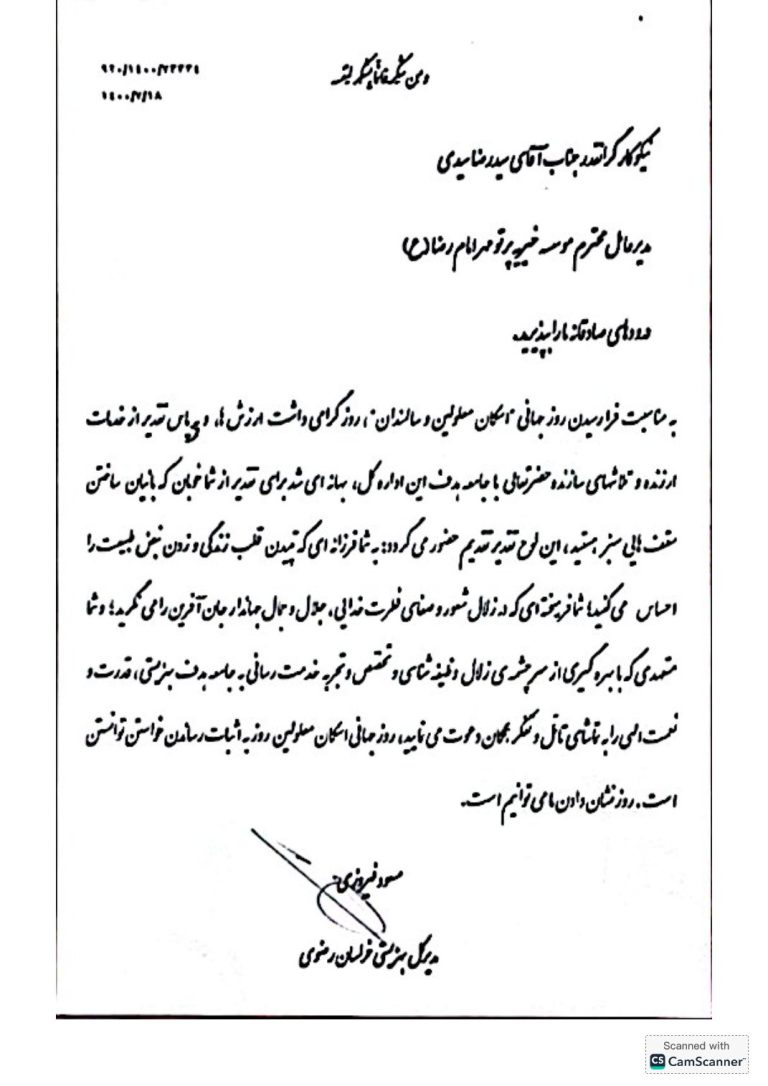 ۹۲۰/۱۴۰۰/۲۳۳۲٤
۱٤۰۰/۷/۱۸
و من یشکر فانما یشکر لنفسه
نیکوکار گرانقدر جناب آقای سیدرضا سیدی
مدیرعامل محترم موسسه خیریه پرتو مهر امام رضا (ع)
درودهای صادقانه ما را بپذیرید.
به مناسبت فرارسیدن روز جهانی "اسکان معلولین و سالمندان"، روز گرامی داشت ارزش ها، و به پاس تقدیر از خدمات
ارزنده و تلاشهای سازنده حضرتعالی با جامعه هدف این اداره کل، بهانه ای شد برای تقدیر از شما خوبان که بانیان ساختن
سقف هایی سبز هستید، این لوح تقدیر تقدیم حضور می گردد: به شما فرزانه ای که تپیدن قلب زندگی و زدن نبض طبیعت را
احساس می کنید؛ شما فرهیخته ای که در زلال شعور و صفای فطرت خدایی، جلال و جمال جهاندار جان آفرین را می نگرید؛ و شما
متعهدی که با بهره گیری از سرچشمه ی زلال وظیفه شناسی و تخصص و تجربه خدمت رسانی به جامعه هدف بهزیستی، قدرت و
نعمت الهی را به تماشای تأمل و تفکر همگان دعوت می نمایید، روز جهانی اسکان معلولین روز به اثبات رساندن خواستن توانستن
است. روز نشان دادن ما می توانیم است.
مسعود فیروزی
مدیرکل بهزیستی خراسان رضوی
Scanned with
CS CamScanner